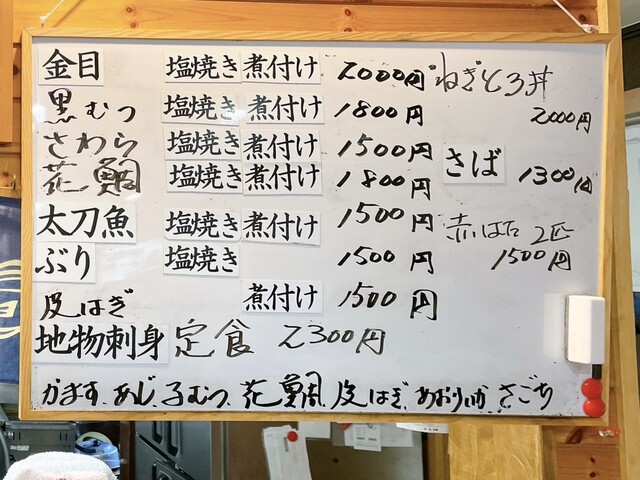 金目 塩焼き 煮付け 2000円
黒むつ 塩焼き 煮付け 1800円
さわら 塩焼き 煮付け 1500円
花鯛 塩焼き 煮付け 1800円
太刀魚 塩焼き 煮付け 1500円
ぶり 塩焼き 1500円
皮はぎ 煮付け 1500円
地物刺身定食 2300円
かます、あじ、子むつ、花鯛、皮はぎ、あおりいか さごち
ねぎとろ丼
2000円
さば 1300円
2匹
1500円